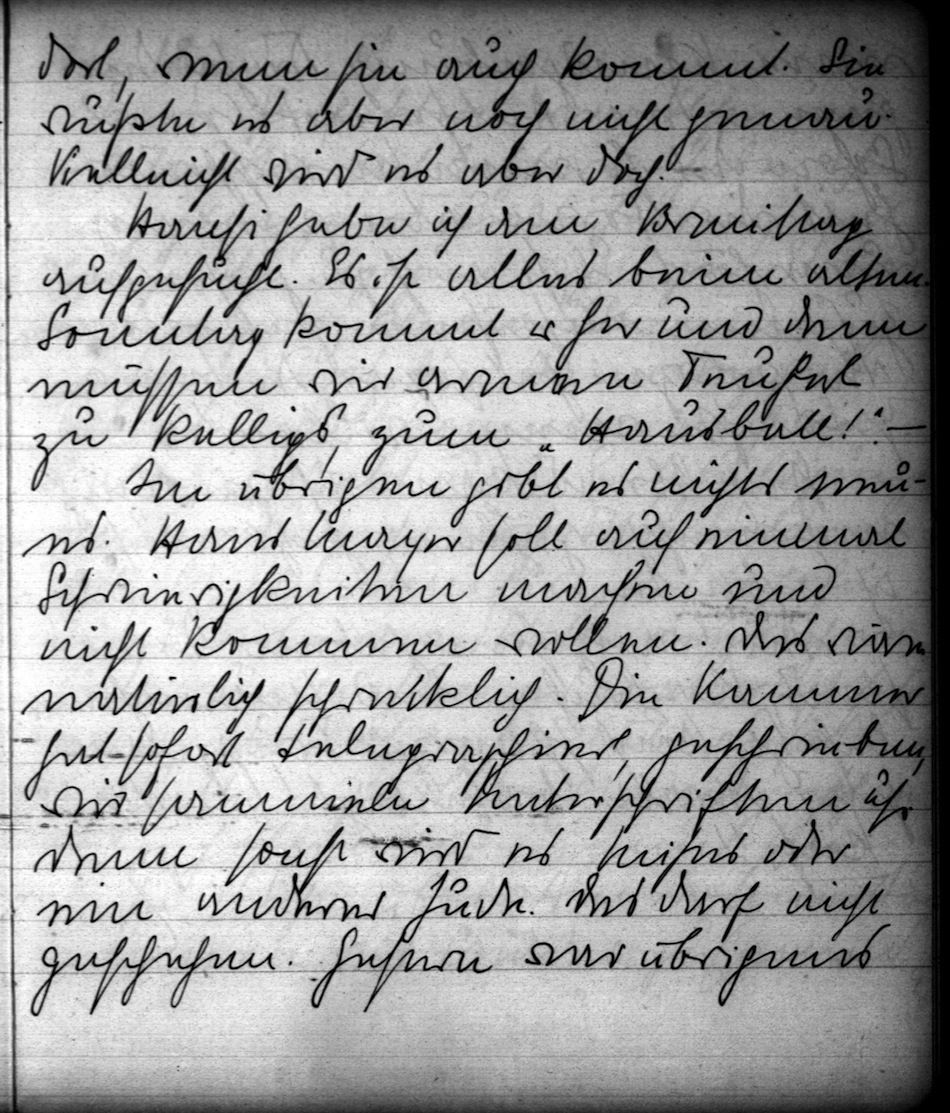 dort, wenn sie auch kommt. Sie
wußte es aber noch nicht genau.
Vielleicht wird es aber doch.
Hansi habe ich am Vormittag
aufgesucht. Es ist alles beim alten.
Sonntag kommt er her und dann
müssen wir armen Teufel
zu Kelligs, zum „Hausball!“. —
Im übrigen gibt es nichts neu-
es. Hans Mayer soll auf einmal
Schwierigkeiten machen und
nicht kommen wollen. Das wäre
natürlich schrecklich. Die Kammer
hat sofort telegraphiert, geschrieben,
wir sammeln Unterschriften usw.
denn sonst wird es
ein anderer Jude. Das darf nicht
geschehen. Gestern war übrigens